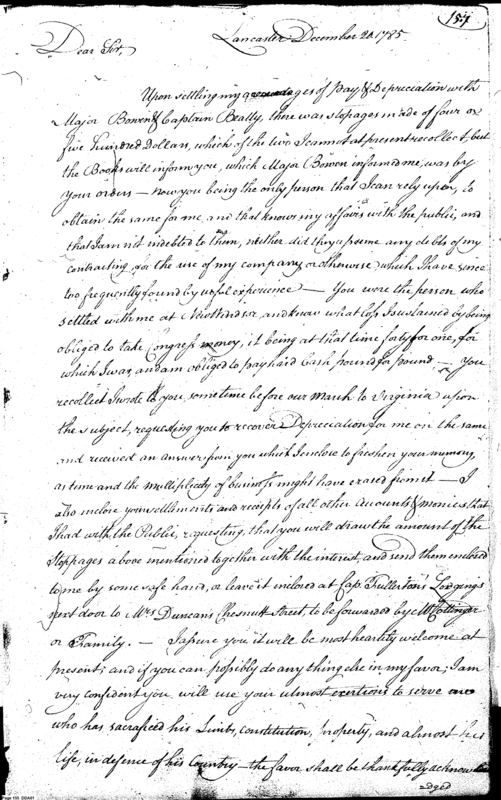 157
Lancaster December 20 1785
Dear Sir,
Upon settling my ages of Pay & Depreciation with
Major Bowen & Captain Beatty, there was stopages made of four or
five Hundred Dollars, which of the two I cannot at present recollect, but
the Books will inform you, which Major Bowen informed me, was by
your orders — now you being the only person that I can rely upon, to
obtain the same for me, and that knows my affairs with the public, and
that I am not indebted to them, neither did they assume any debts of my
contracting, for the use of my company, or otherwise, which I have since
too frequently found by woful experience — You were the person who
settled with me at New Windsor, and know what loss I sustained by being
obliged to take Congress money, it being at that time forty for one, for
which I was, and am obliged to pay hard Cash pound for pound — You
recollect I wrote to you, sometime before our March to Virginia upon
the subject, requesting you to recover Depreciation for me on the same
and received an answer from you which I enclose to freshen your memory,
as time and the multiplicity of business might have erased from it — I
also inclose your settlements and receipts of all other Accounts & monies that
I had with the Public, requesting, that you will draw the amount of the
Stoppages above mentioned together with the interest, and send them enclosed
to me by some safe hand, or leave it inclosed at Cap. Fullerton's Lodgings
next door to Mrs Duncan's Chesnutt Street, to be forwarded by Mr Cottinger
or Family. — I assure you it will be most heartily welcome at
present; and if you can possibly do any thing else in my favor, I am
very confident you will use your utmost exertions to serve one
who has sacraficed his Limbs, constitution, property, and almost his
life, in defence of his Country — the favor shall be thankfully acknow
edged
Page 155